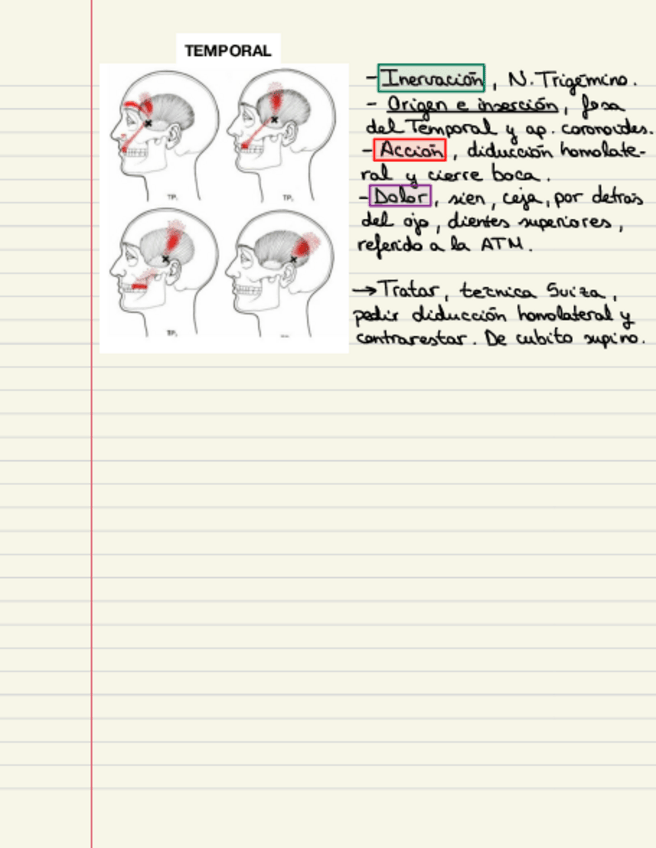 TEMPORAL
TP₁
TP₂
TP₃
- Inervación, N. Trigémino.
- Origen e inserción, fosa
del Temporal y ap. coronoides.
- Acción, diducción homolate-
ral y cierre boca.
- Dolor, sien, ceja, por detrás
del ojo, dientes superiores,
referido a la ATM.
→ Tratar, tecnica Suiza,
pedir diducción homolateral y
contrarestar. De cubito supino.